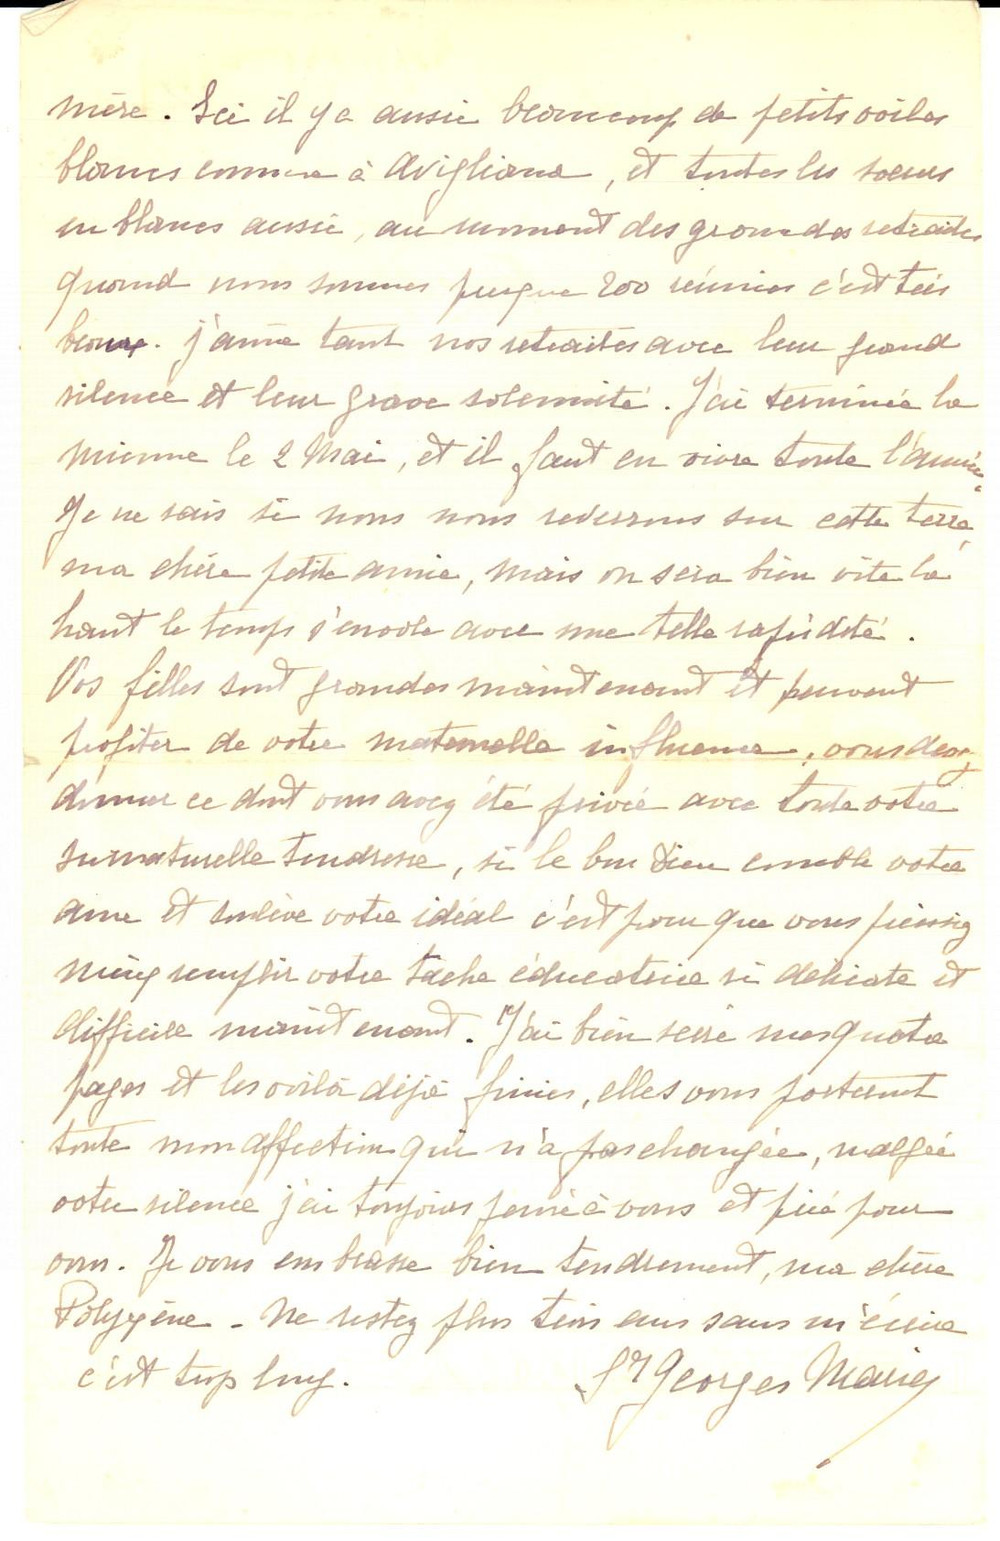 mère. Ici il y a aussi beaucoup de petits voiles
blancs comme à Avigliana, et toutes les soeurs
en blancs aussi, au moment des grandes retraites
quand nous sommes presque 200 réunies c'est très
beau. j'aime tant nos retraites avec leur grand
silence et leur grave solennité. J'ai terminée la
mienne le 2 Mai, et il faut en vivre toute l'année.
Je ne sais si nous nous reverrons sur cette terre,
ma chère petite amie, mais on sera bien vite là
haut le temps s'envole avec une telle rapidité.
Vos filles sont grandes maintenant et peuvent
profiter de votre maternelle influence, vous devez
donner ce dont vous avez été privée avec toute votre
surnaturelle tendresse, si le bon Dieu comble votre
âme et soulève votre idéal c'est pour que vous puissiez
mieux remplir votre tâche éducatrice si délicate et
difficile maintenant. J'ai bien serré mes quatre
pages et les voilà déjà finies, elles vous porteront
toute mon affection qui n'a pas changée, malgré
votre silence j'ai toujours pensé à vous et prié pour
vous. Je vous embrasse bien tendrement, ma chère
Polyxène - Ne restez plus trois ans sans m'écrire
c'est trop long. Sr Georges Marie